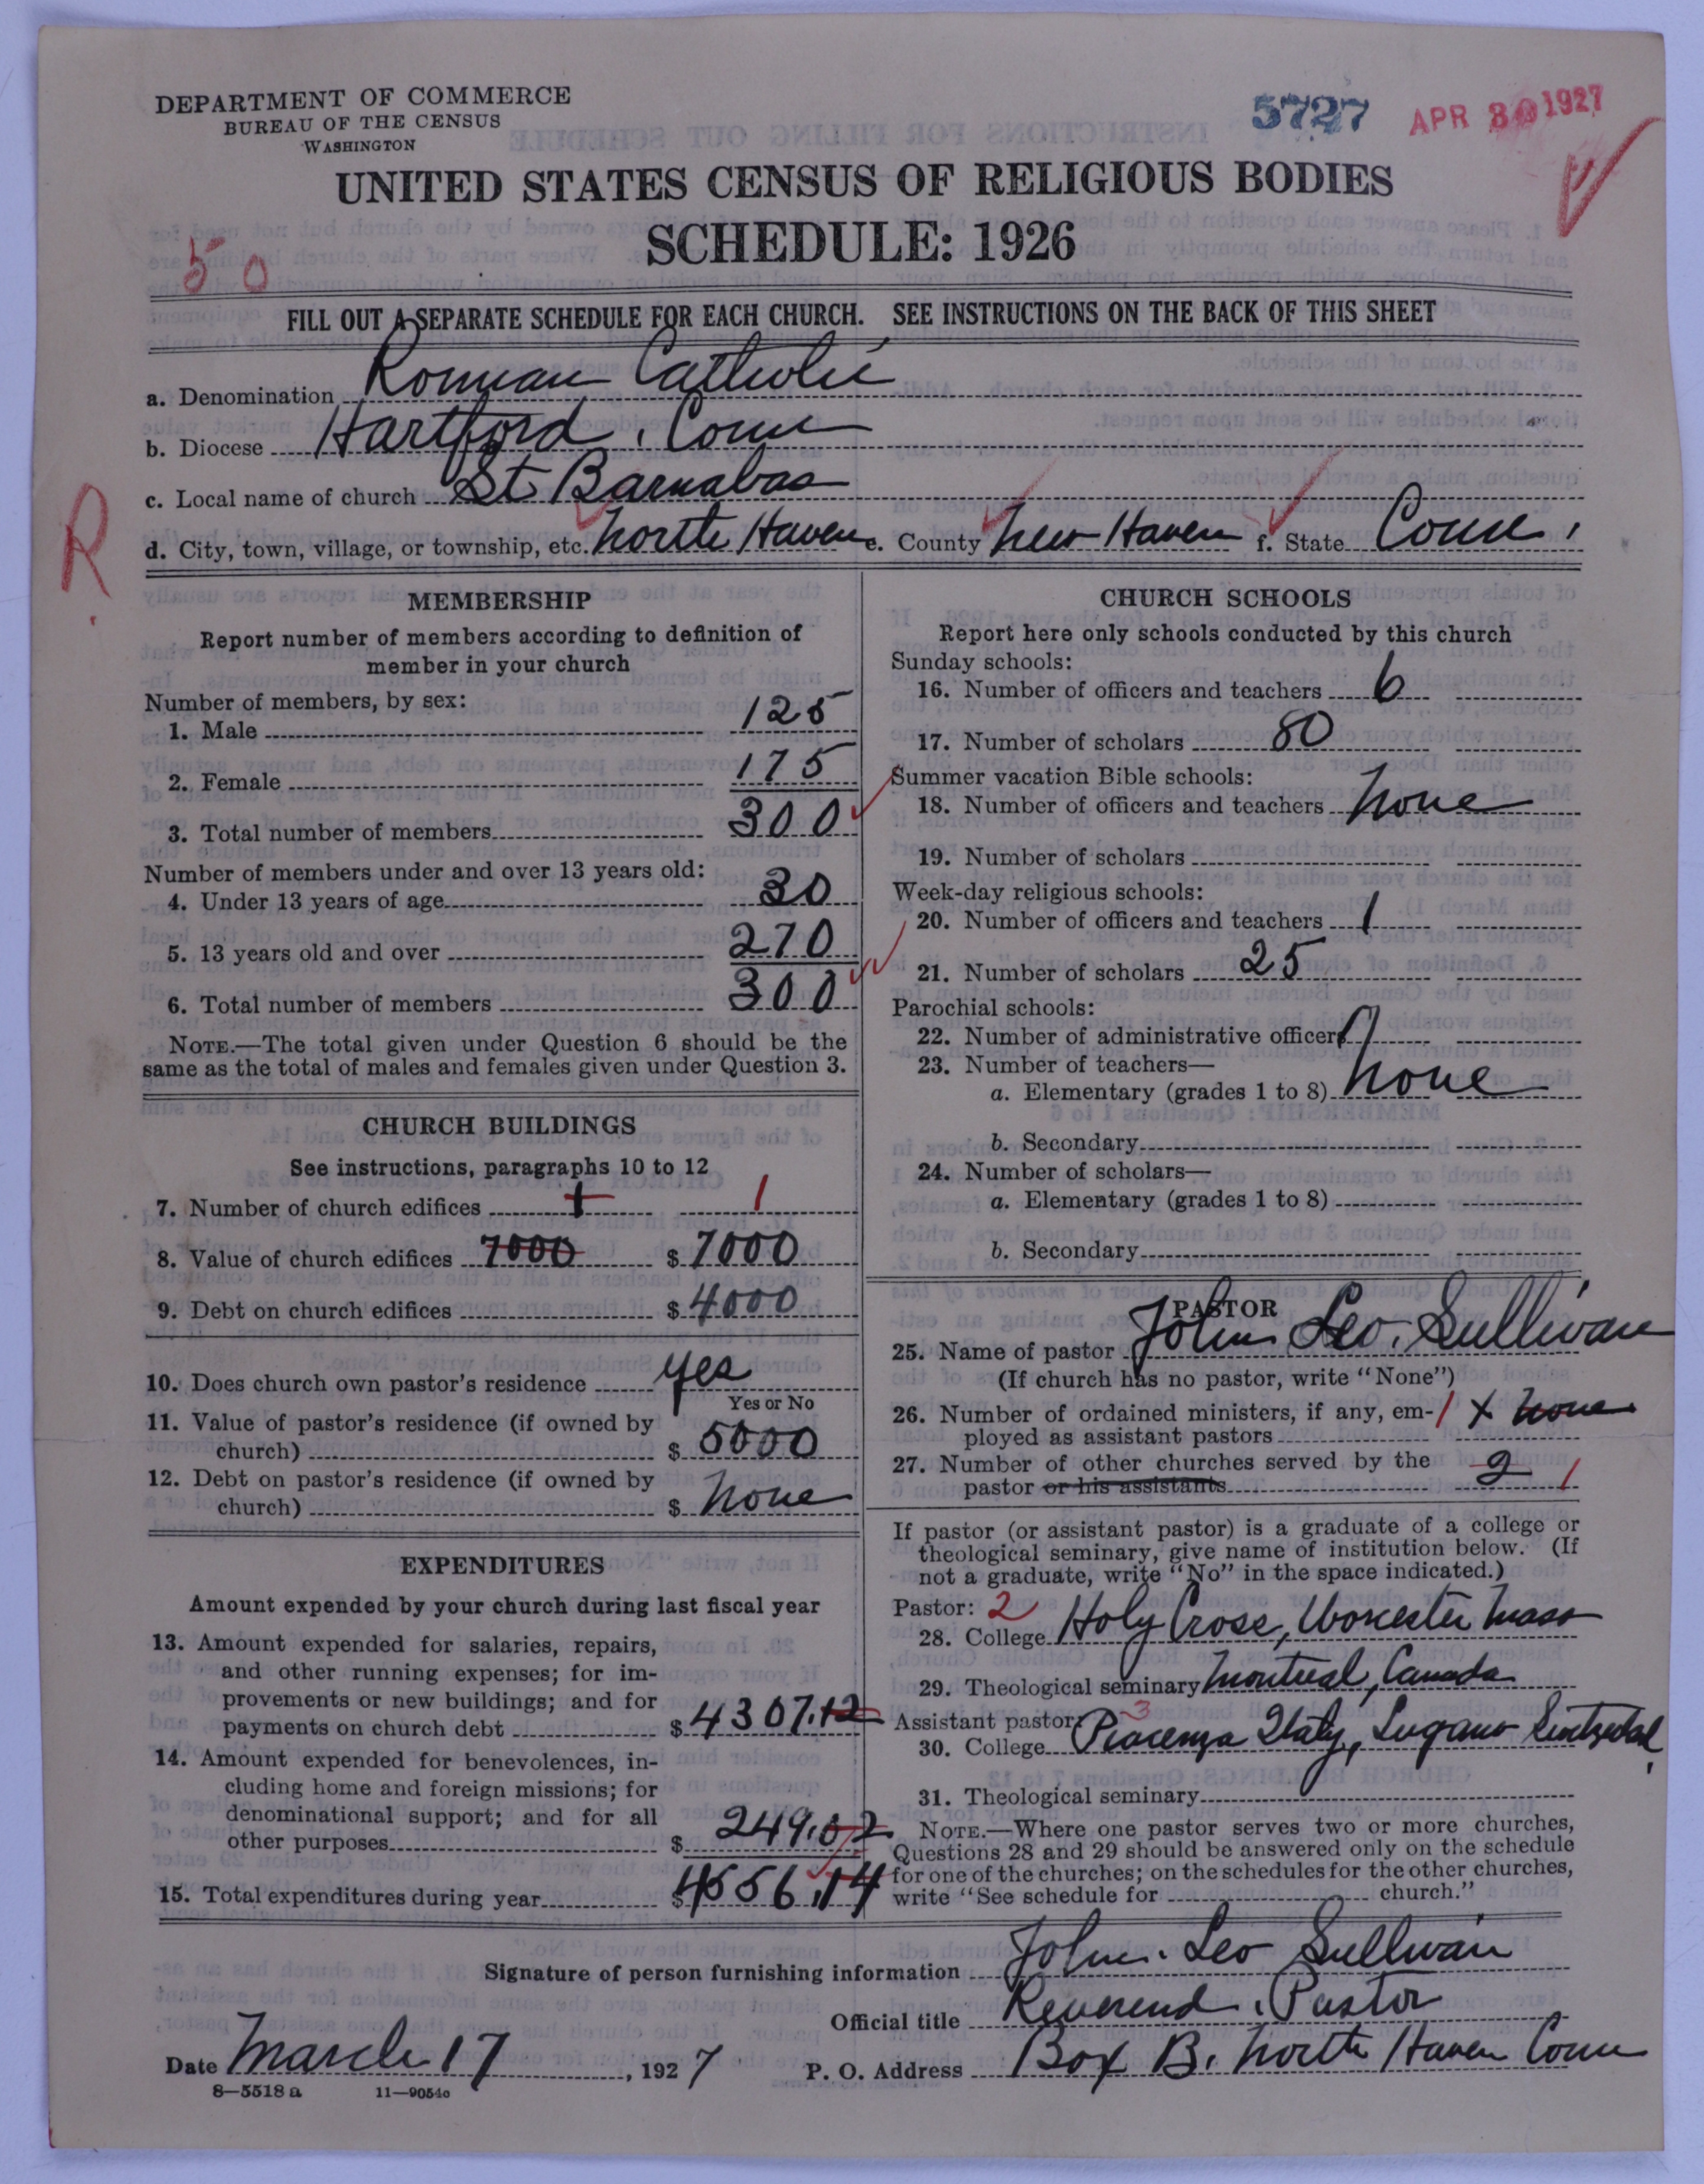 DEPARTMENT OF COMMERCE
BUREAU OF THE CENSUS
WASHINGTON
5727 APR 30 1927
UNITED STATES CENSUS OF RELIGIOUS BODIES
SCHEDULE: 1926
50
FILL OUT A SEPARATE SCHEDULE FOR EACH CHURCH. SEE INSTRUCTIONS ON THE BACK OF THIS SHEET
a. Denomination Roman Catholic
b. Diocese Hartford, Conn
c. Local name of church St Barnabas
R
d. City, town, village, or township, etc. North Haven e. County New Haven f. State Conn.
MEMBERSHIP
Report number of members according to definition of
member in your church
Number of members, by sex:
1. Male 125
2. Female 175
3. Total number of members 300
Number of members under and over 13 years old:
4. Under 13 years of age 30
5. 13 years old and over 270
6. Total number of members 300
NOTE.—The total given under Question 6 should be the
same as the total of males and females given under Question 3.
CHURCH BUILDINGS
See instructions, paragraphs 10 to 12
7. Number of church edifices 1 1
8. Value of church edifices 7000 $ 7000
9. Debt on church edifices $ 4000
10. Does church own pastor's residence yes
Yes or No
11. Value of pastor's residence (if owned by
church) $ 5000
12. Debt on pastor's residence (if owned by
church) $ None
EXPENDITURES
Amount expended by your church during last fiscal year
13. Amount expended for salaries, repairs,
and other running expenses; for im-
provements or new buildings; and for
payments on church debt $ 4307.12
14. Amount expended for benevolences, in-
cluding home and foreign missions; for
denominational support; and for all
other purposes $ 249.02
15. Total expenditures during year $ 4556.14
CHURCH SCHOOLS
Report here only schools conducted by this church
Sunday schools:
16. Number of officers and teachers 6
17. Number of scholars 80
Summer vacation Bible schools:
18. Number of officers and teachers None
19. Number of scholars
Week-day religious schools:
20. Number of officers and teachers 1
21. Number of scholars 25
Parochial schools:
22. Number of administrative officers
23. Number of teachers—
a. Elementary (grades 1 to 8) None
b. Secondary
24. Number of scholars—
a. Elementary (grades 1 to 8)
b. Secondary
PASTOR
25. Name of pastor John Leo Sullivan
(If church has no pastor, write "None")
26. Number of ordained ministers, if any, em- 1 X None
ployed as assistant pastors
27. Number of other churches served by the 2 1
pastor or his assistants
If pastor (or assistant pastor) is a graduate of a college or
theological seminary, give name of institution below. (If
not a graduate, write "No" in the space indicated.)
Pastor: 2
28. College Holy Cross, Worcester Mass
29. Theological seminary Montreal, Canada
Assistant pastor: 3
30. College Piacenza Italy, Lugano
31. Theological seminary
NOTE.—Where one pastor serves two or more churches,
Questions 28 and 29 should be answered only on the schedule
for one of the churches; on the schedules for the other churches,
write "See schedule for church."
Signature of person furnishing information John Leo Sullivan
Official title Reverend, Pastor
Date March 17, 1927 P. O. Address Box B. North Haven Conn
8—5518 a 11—9054c